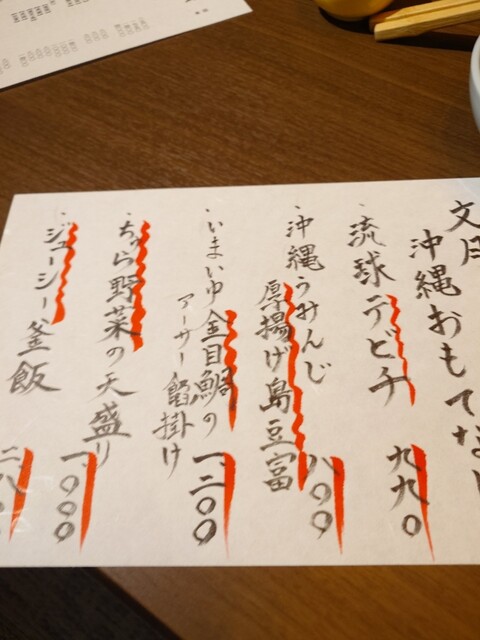 文月
沖縄おもてなし
・流球テビチ
九九〇
・沖縄うみんじ
厚揚げ島豆富
八〇〇
・いまいゆ金目鯛の
アーサー餡掛け
一、二〇〇
・ちゅら野菜の天盛り
一、〇〇〇
・ジューシー釜飯